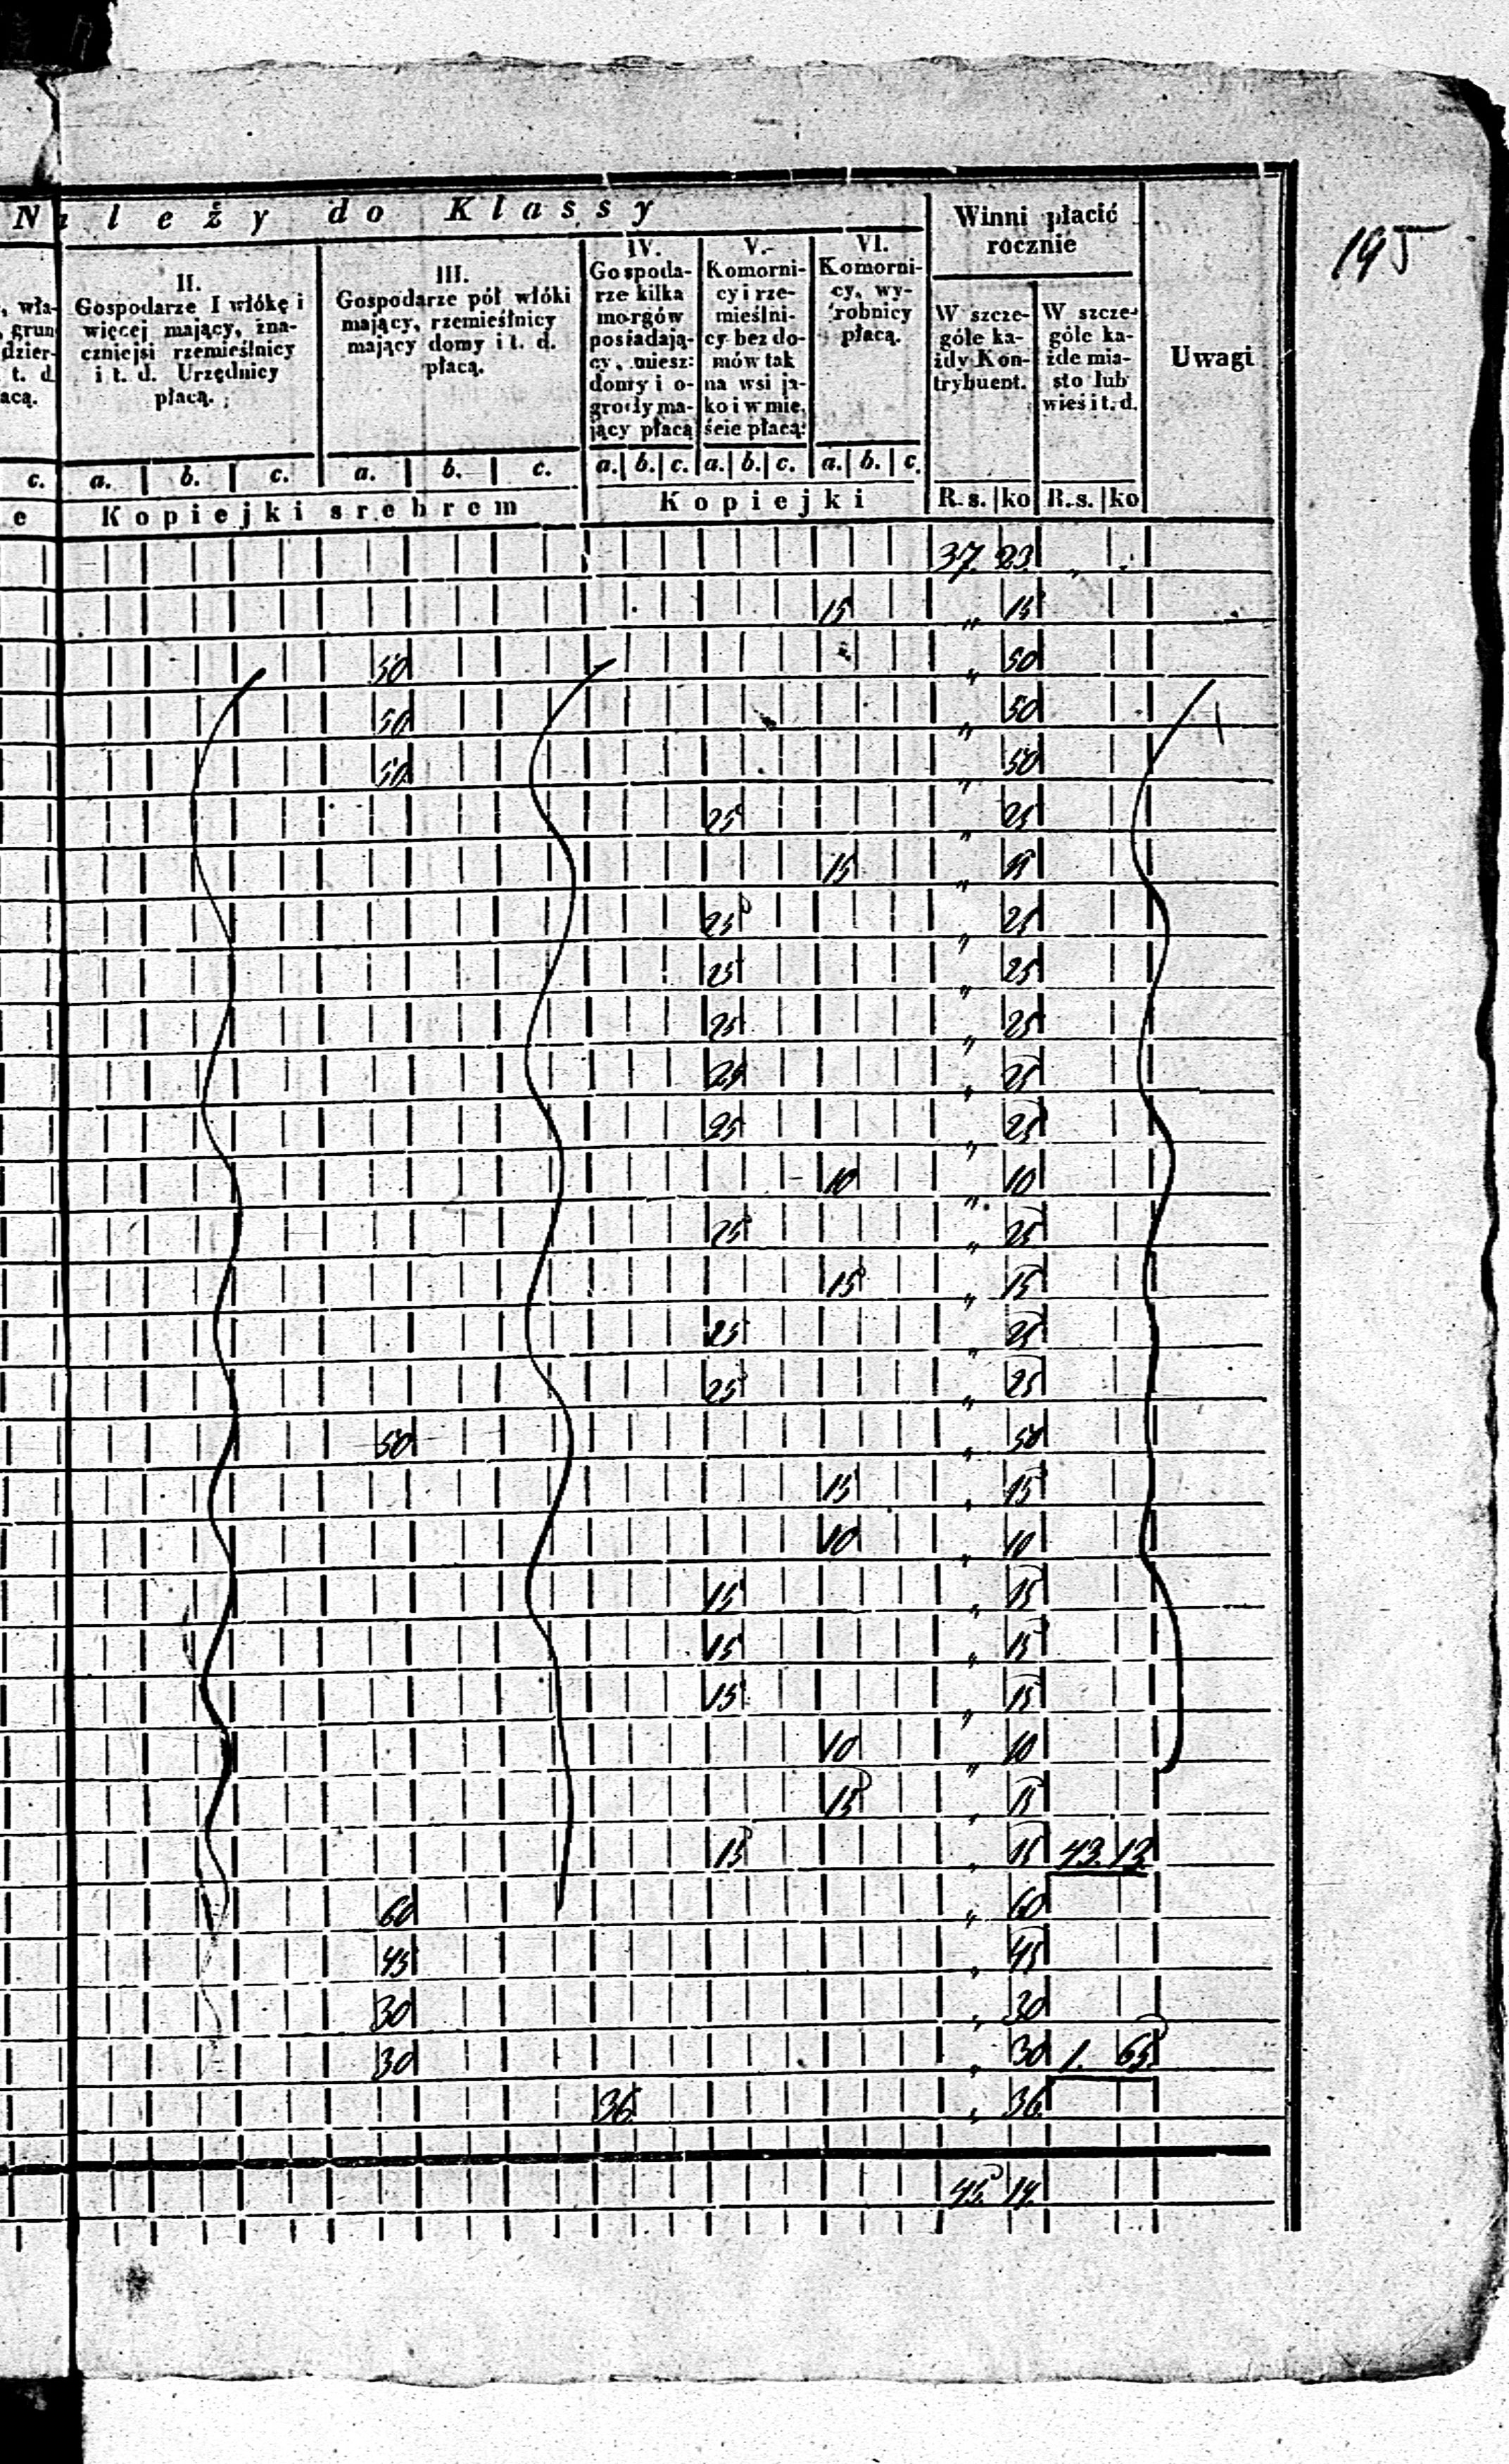 Należy do Klassy
Winni płacić rocznie
Uwagi
195
, wła-
, grun
dzier-
t. d
acą.
II.
Gospodarze I włókę i
więcej mający, zna-
czniejsi rzemieślnicy
i t. d. Urzędnicy
płacą.
III.
Gospodarze pół włóki
mający, rzemieślnicy
mający domy i t. d.
płacą.
IV.
Gospoda-
rze kilka
morgów
posiadają-
cy, miesz:
domy i o-
grody ma-
jący płacą
V.
Komorni-
cy i rze-
mieślni-
cy bez do-
mów tak
na wsi ja-
ko i w mie-
ście płacą:
VI.
Komorni-
cy, wy-
robnicy
płacą.
W szcze-
góle ka-
żdy Kon-
trybuent.
W szcze-
góle ka-
żde mia-
sto lub
wieś i t. d.
c. a. b. c. a. b. c. a. b. c. a. b. c. a. b. c.
e Kopiejki srebrem Kopiejki R. s. ko R. s. ko
37. 23. „ „
15 „ 15
50 „ 50
50 „ 50
50 „ 50
25 „ 25
15 „ 15
25 „ 25
25 „ 25
25 „ 25
25 „ 25
25 „ 25
10 „ 10
25 „ 25
15 „ 15
25 „ 25
25 „ 25
50 „ 50
15 „ 15
10 „ 10
15 „ 15
15 „ 15
15 „ 15
10 „ 10
15 „ 15
15 „ 15 43. 13
60 „ 60
45 „ 45
30 „ 30
30 „ 30 1. 65.
36. „ 36.
45. 14.